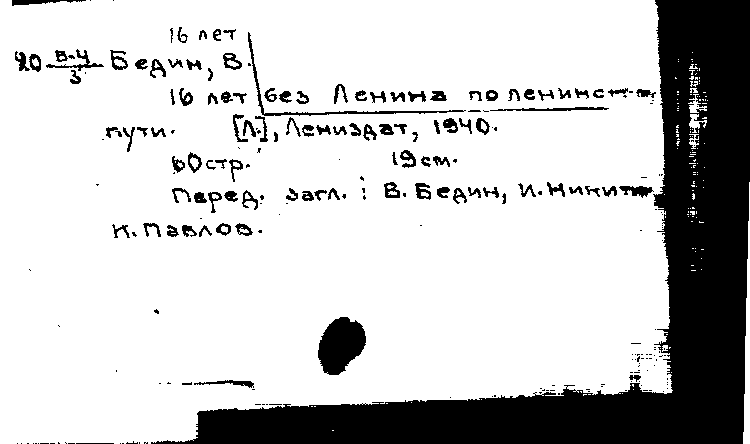 16 лет
20 В-4/3 Бедин, В.
16 лет без Ленина по ленинс
пути. [Л.], Лениздат, 1940.
60стр. 19см.
Перед. загл.: В. Бедин, И. Никит
К. Павлов.